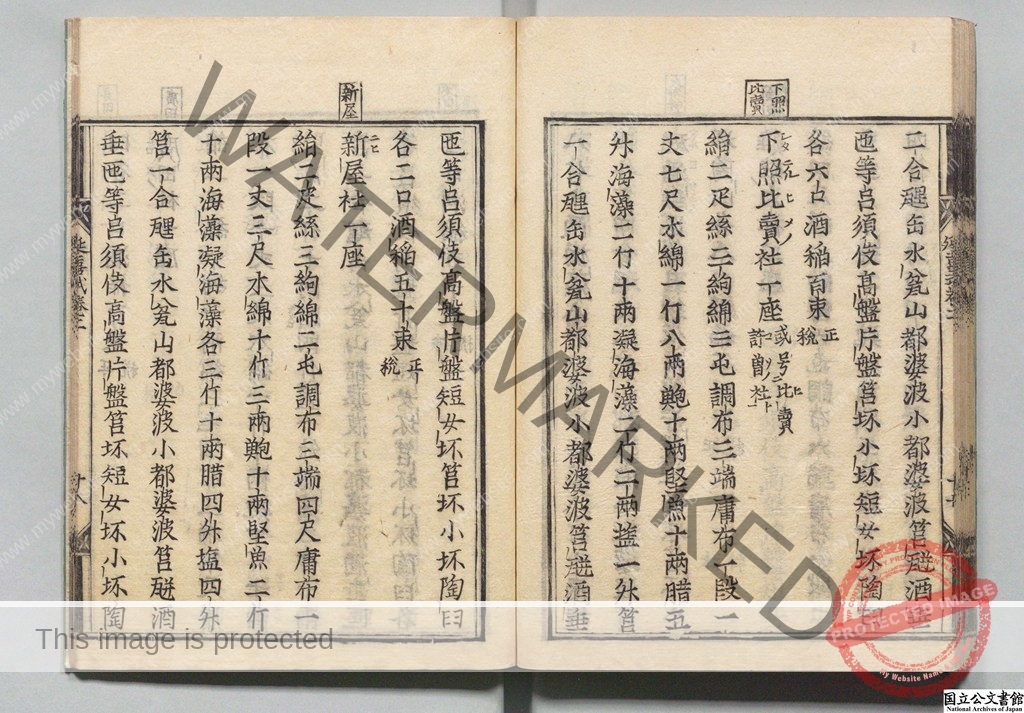 下照比賣
二合䤄缶水瓫山都婆波小都婆波筥瓼酒垂
匜等呂須伎髙盤片盤筥坏小坏短女坏陶臼
各六口酒稲百束正税
下照比賣社一座或号比賣許曽社
絁二疋絲三絢綿三屯調布三端庸布一段一
丈七尺水綿一斤八兩鮑十兩堅魚十兩腊五
升海藻二斤十兩凝海藻二斤二兩塩一升筥
一合䤄缶水瓫山都婆波小都婆波筥瓼酒垂
新屋
匜等呂須伎髙盤片盤短女坏筥坏小坏陶臼
各二口酒稲五十束正税
新屋社一座
絁二疋絲三絢綿二屯調布三端四尺庸布一
段一丈三尺水綿十斤三兩鮑十兩堅魚二斤
十兩海藻凝海藻各三斤十兩腊四升塩四升
筥一合䤄缶水瓫山都婆波小都婆波筥瓼酒
垂匜等呂須伎髙盤片盤筥坏短女坏小坏陶
延喜式卷二
十八
WATERMARKED
This image is protected
PROTECTED IMAGE
My Website Name
国立公文書館
National Archives of Japan